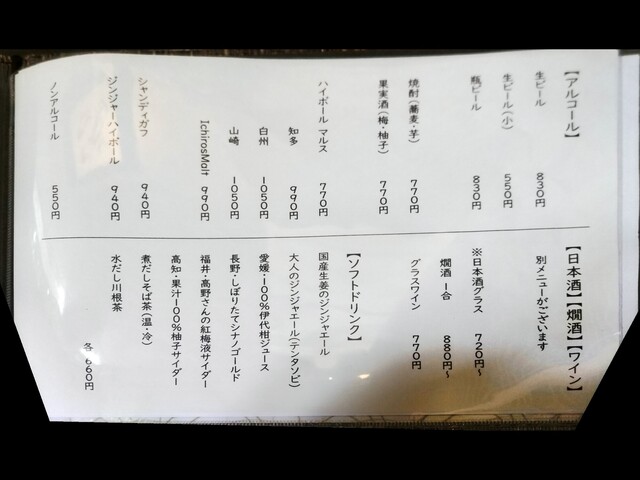 【アルコール】
生ビール 830円
生ビール(小) 550円
瓶ビール 830円
焼酎(蕎麦・芋) 770円
果実酒(梅・柚子) 770円
ハイボール マルス 770円
知多 990円
白州 1050円
山崎 1050円
IchirosMalt 990円
シャンディガフ 940円
ジンジャーハイボール 940円
ノンアルコール 550円
【日本酒】【燗酒】【ワイン】
別メニューがございます
※日本酒グラス 720円~
燗酒 1合 880円~
グラスワイン 770円
【ソフトドリンク】
国産生姜のジンジャエール
大人のジンジャエール(テンタソビ)
愛媛・100%伊代柑ジュース
長野・しぼりたてシナノゴールド
福井・高野さんの紅梅液サイダー
高知・果汁100%柚子サイダー
煮だしそば茶(温・冷)
水だし川根茶
各 660円